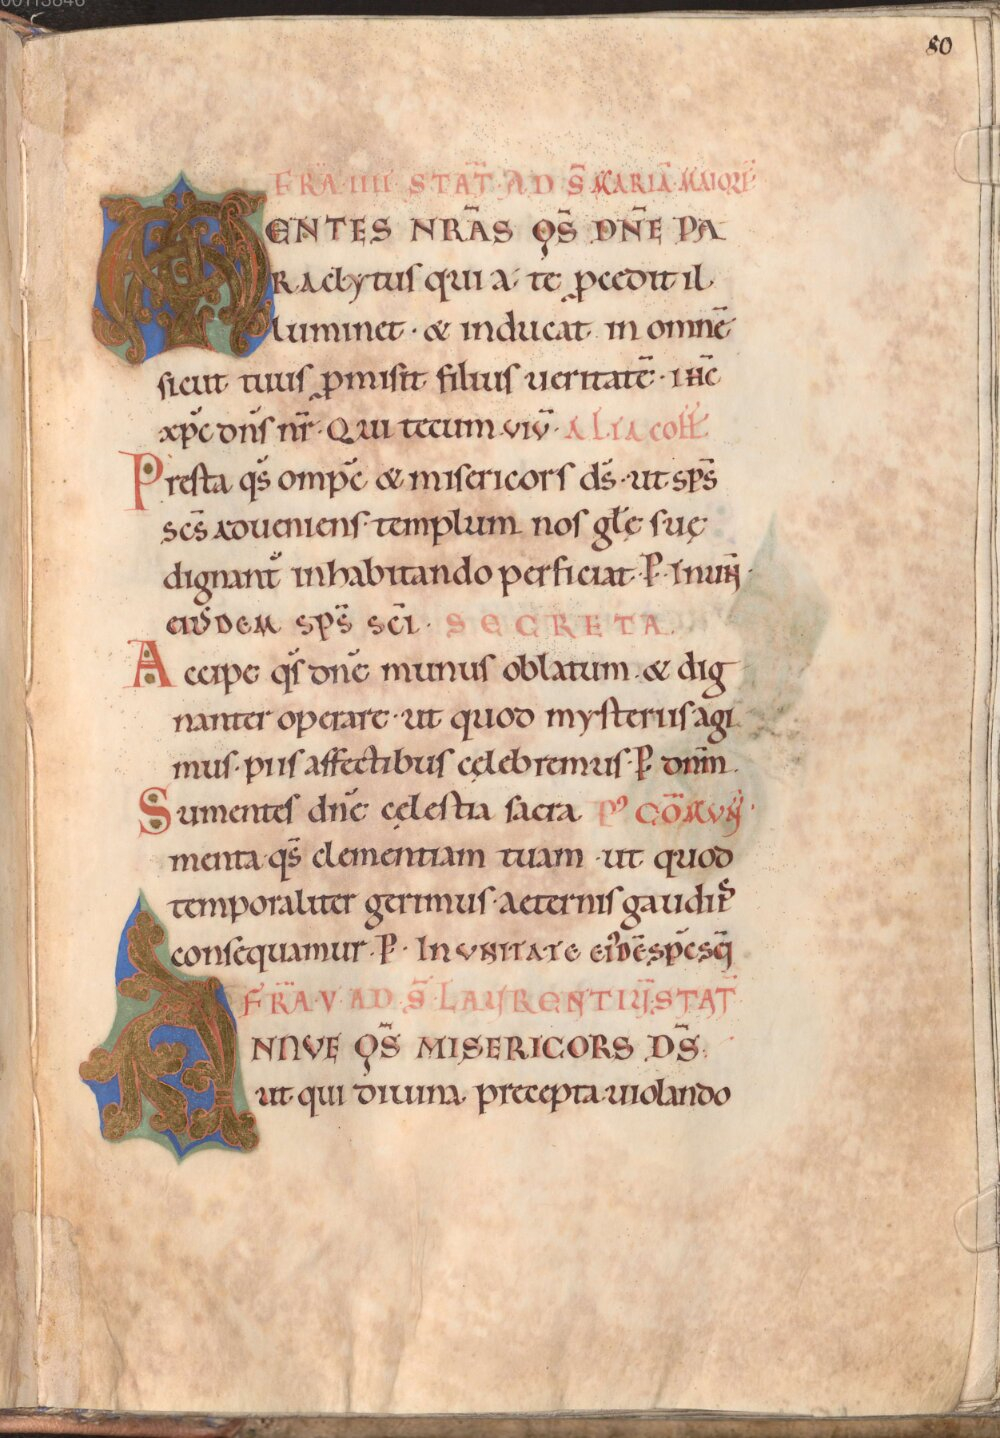 80
FR̄A IIII STAT̄ AD S̄ MARIĀ MAIORĒ
MENTES NR̄AS QS̄ DN̄E PA
RAclytus qui a te ꝓcedit il
luminet · & inducat in omnē
sicut tuus ꝓmisit filius ueritatē · ihc̄
xp̄c dn̄s nr̄ · Qui tecum viv̄ · ALIA coll̄
Presta qs̄ omp̄c & misericors ds̄ · ut sp̄s
sc̄s adueniens · templum nos gl̄ę suę
dignant̄ inhabitando perficiat · P̄ · In un̄
eiusdem sp̄s sc̄i · SECRETA
Accipe qs̄ dn̄e munus oblatum · & dig
nanter operare · ut quod mysteriis agi
mus · piis affectibus cęlebremus · P̄ dn̄m
Sumentes dn̄e cęlestia sacra P᾿ CŌMVN̄
menta qs̄ clementiam tuam · ut quod
temporaliter gerimus · aeternis gaudiis
consequamur · P̄ · In vnitate ei᾿dē sp̄c sc̄i
FR̄A · V AD S̄ LAURENTIŪ STAT̄
ANNVE QS̄ MISERICORS DS̄
ut qui diuina precepta uiolando